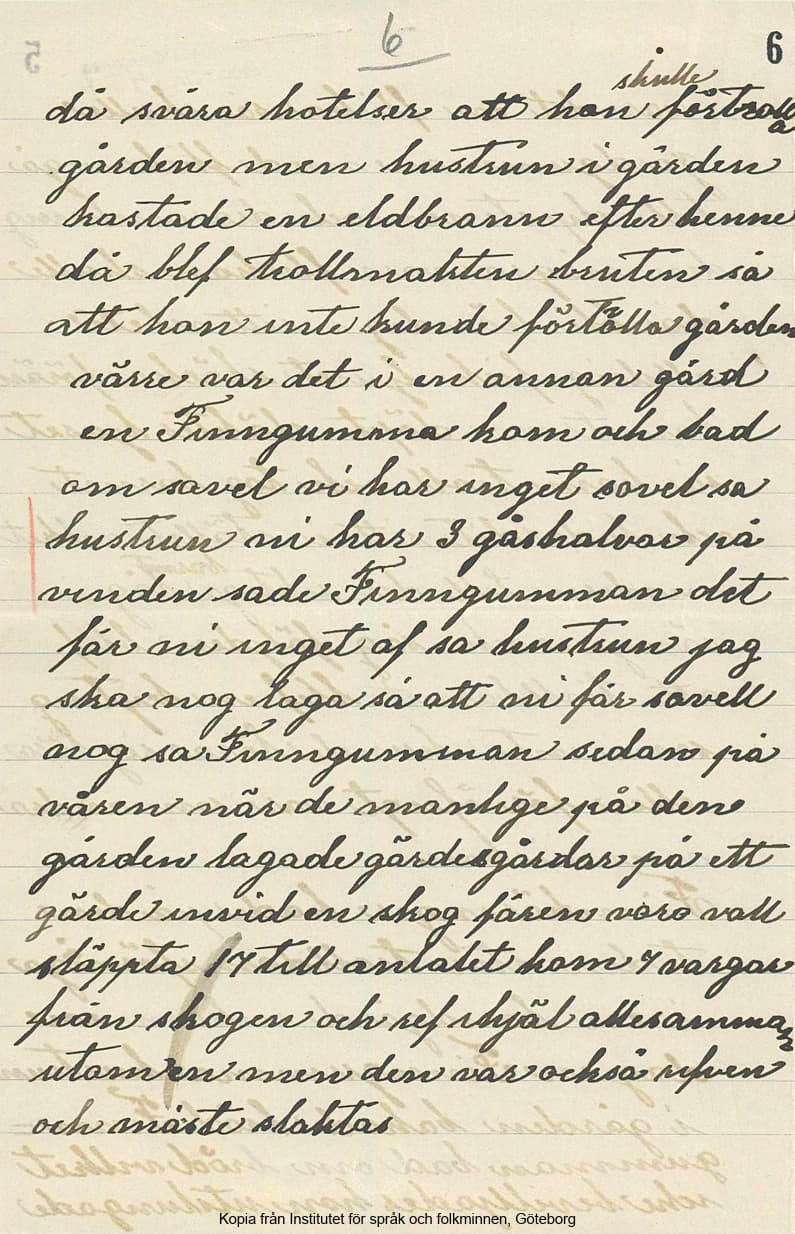 6
6
skulle
då svåra hotelser att hon förtrolla
gården men hustrun i gården
kastade en eldbrann efter henne
då blef trollmakten bruten så
att hon inte kunde förtölla gården
värre var det i en annan gård
en Finngumma kom och bad
om savel vi har inget sovel sa
hustrun ni har 3 gåshalvor på
vinden sade Finngumman det
får ni inget af sa hustrun jag
ska nog laga så att ni får savell
nog sa Finngumman sedan på
våren när de manlige på den
gården lagade gärdesgårdar på ett
gärde invid en skog fåren voro vall
släppta 17 till antalet kom 7 vargar
från skogen och ref ihjäl allesamman
utom en men den var också rifven
och måste slaktas
Kopia från Institutet för språk och folkminnen, Göteborg